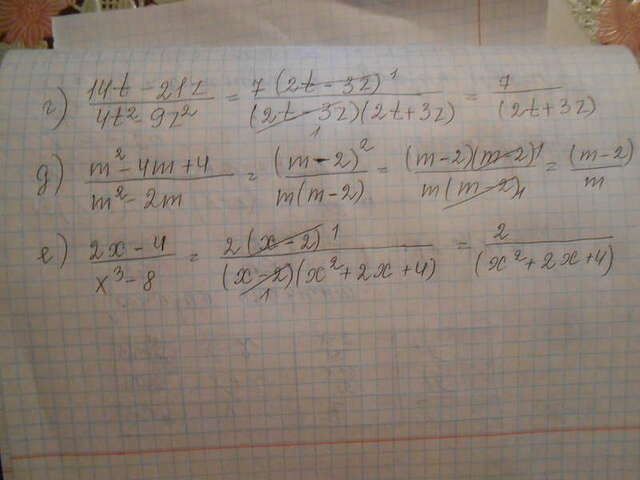 г) (14t - 21z)/(4t² - 9z²) = 7(2t - 3z)¹/(2t - 3z)₁(2t + 3z) = 7/(2t + 3z)
д) (m² - 4m + 4)/(m² - 2m) = (m - 2)²/m(m - 2) = (m - 2)(m - 2)¹/m(m - 2)₁ = (m - 2)/m
е) (2x - 4)/(x³ - 8) = 2(x - 2)¹/(x - 2)₁(x² + 2x + 4) = 2/(x² + 2x + 4)